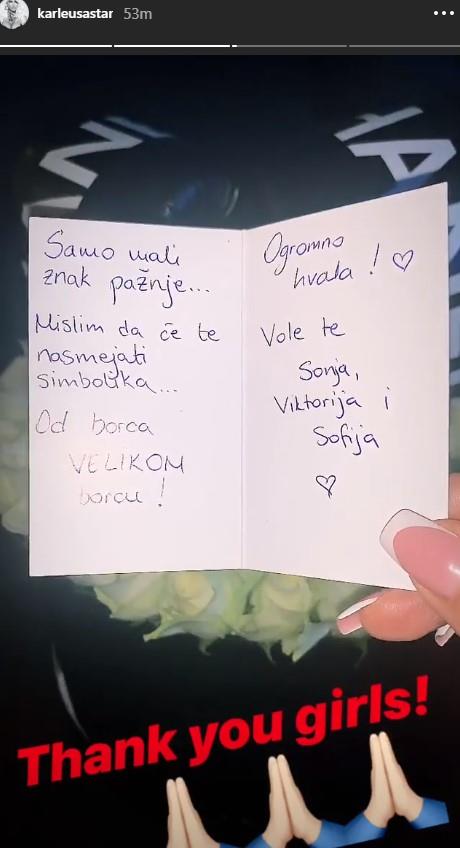 karleusastar 53m
Samo mali
znak pažnje...
Mislim da će te
nasmejati
simbolika...
Od borca
VELIKOM
borcu!
Ogromno
hvala! ♡
Vole te
Sonja,
Viktorija i
Sofija
♡
Thank you girls!